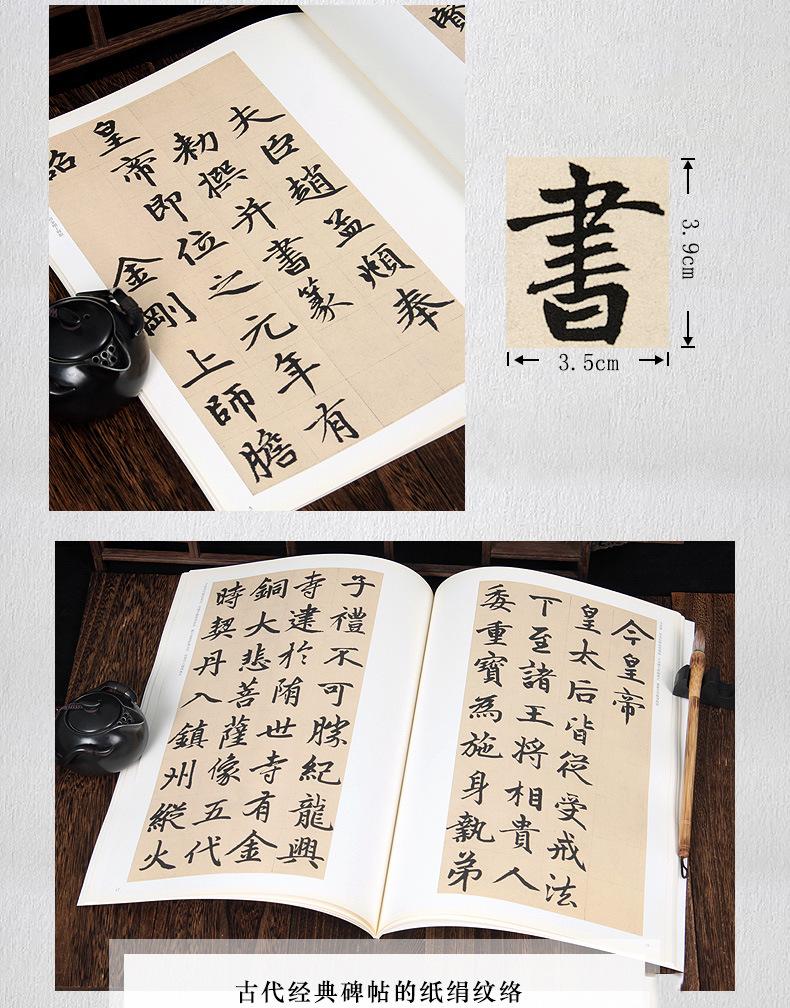 夫臣趙孟頫奉
勅撰并書篆
皇帝即位之元年有
詔金剛上師膽
書
3.9cm
3.5cm
今皇帝
皇太后皆從受戒法
下至諸王將相貴人
委重寶為施身執弟
子禮不可勝紀龍興
寺建於隋世寺有金
銅大悲菩薩像五代
時契丹入鎮州縱火
古代经典碑帖的纸绢纹络